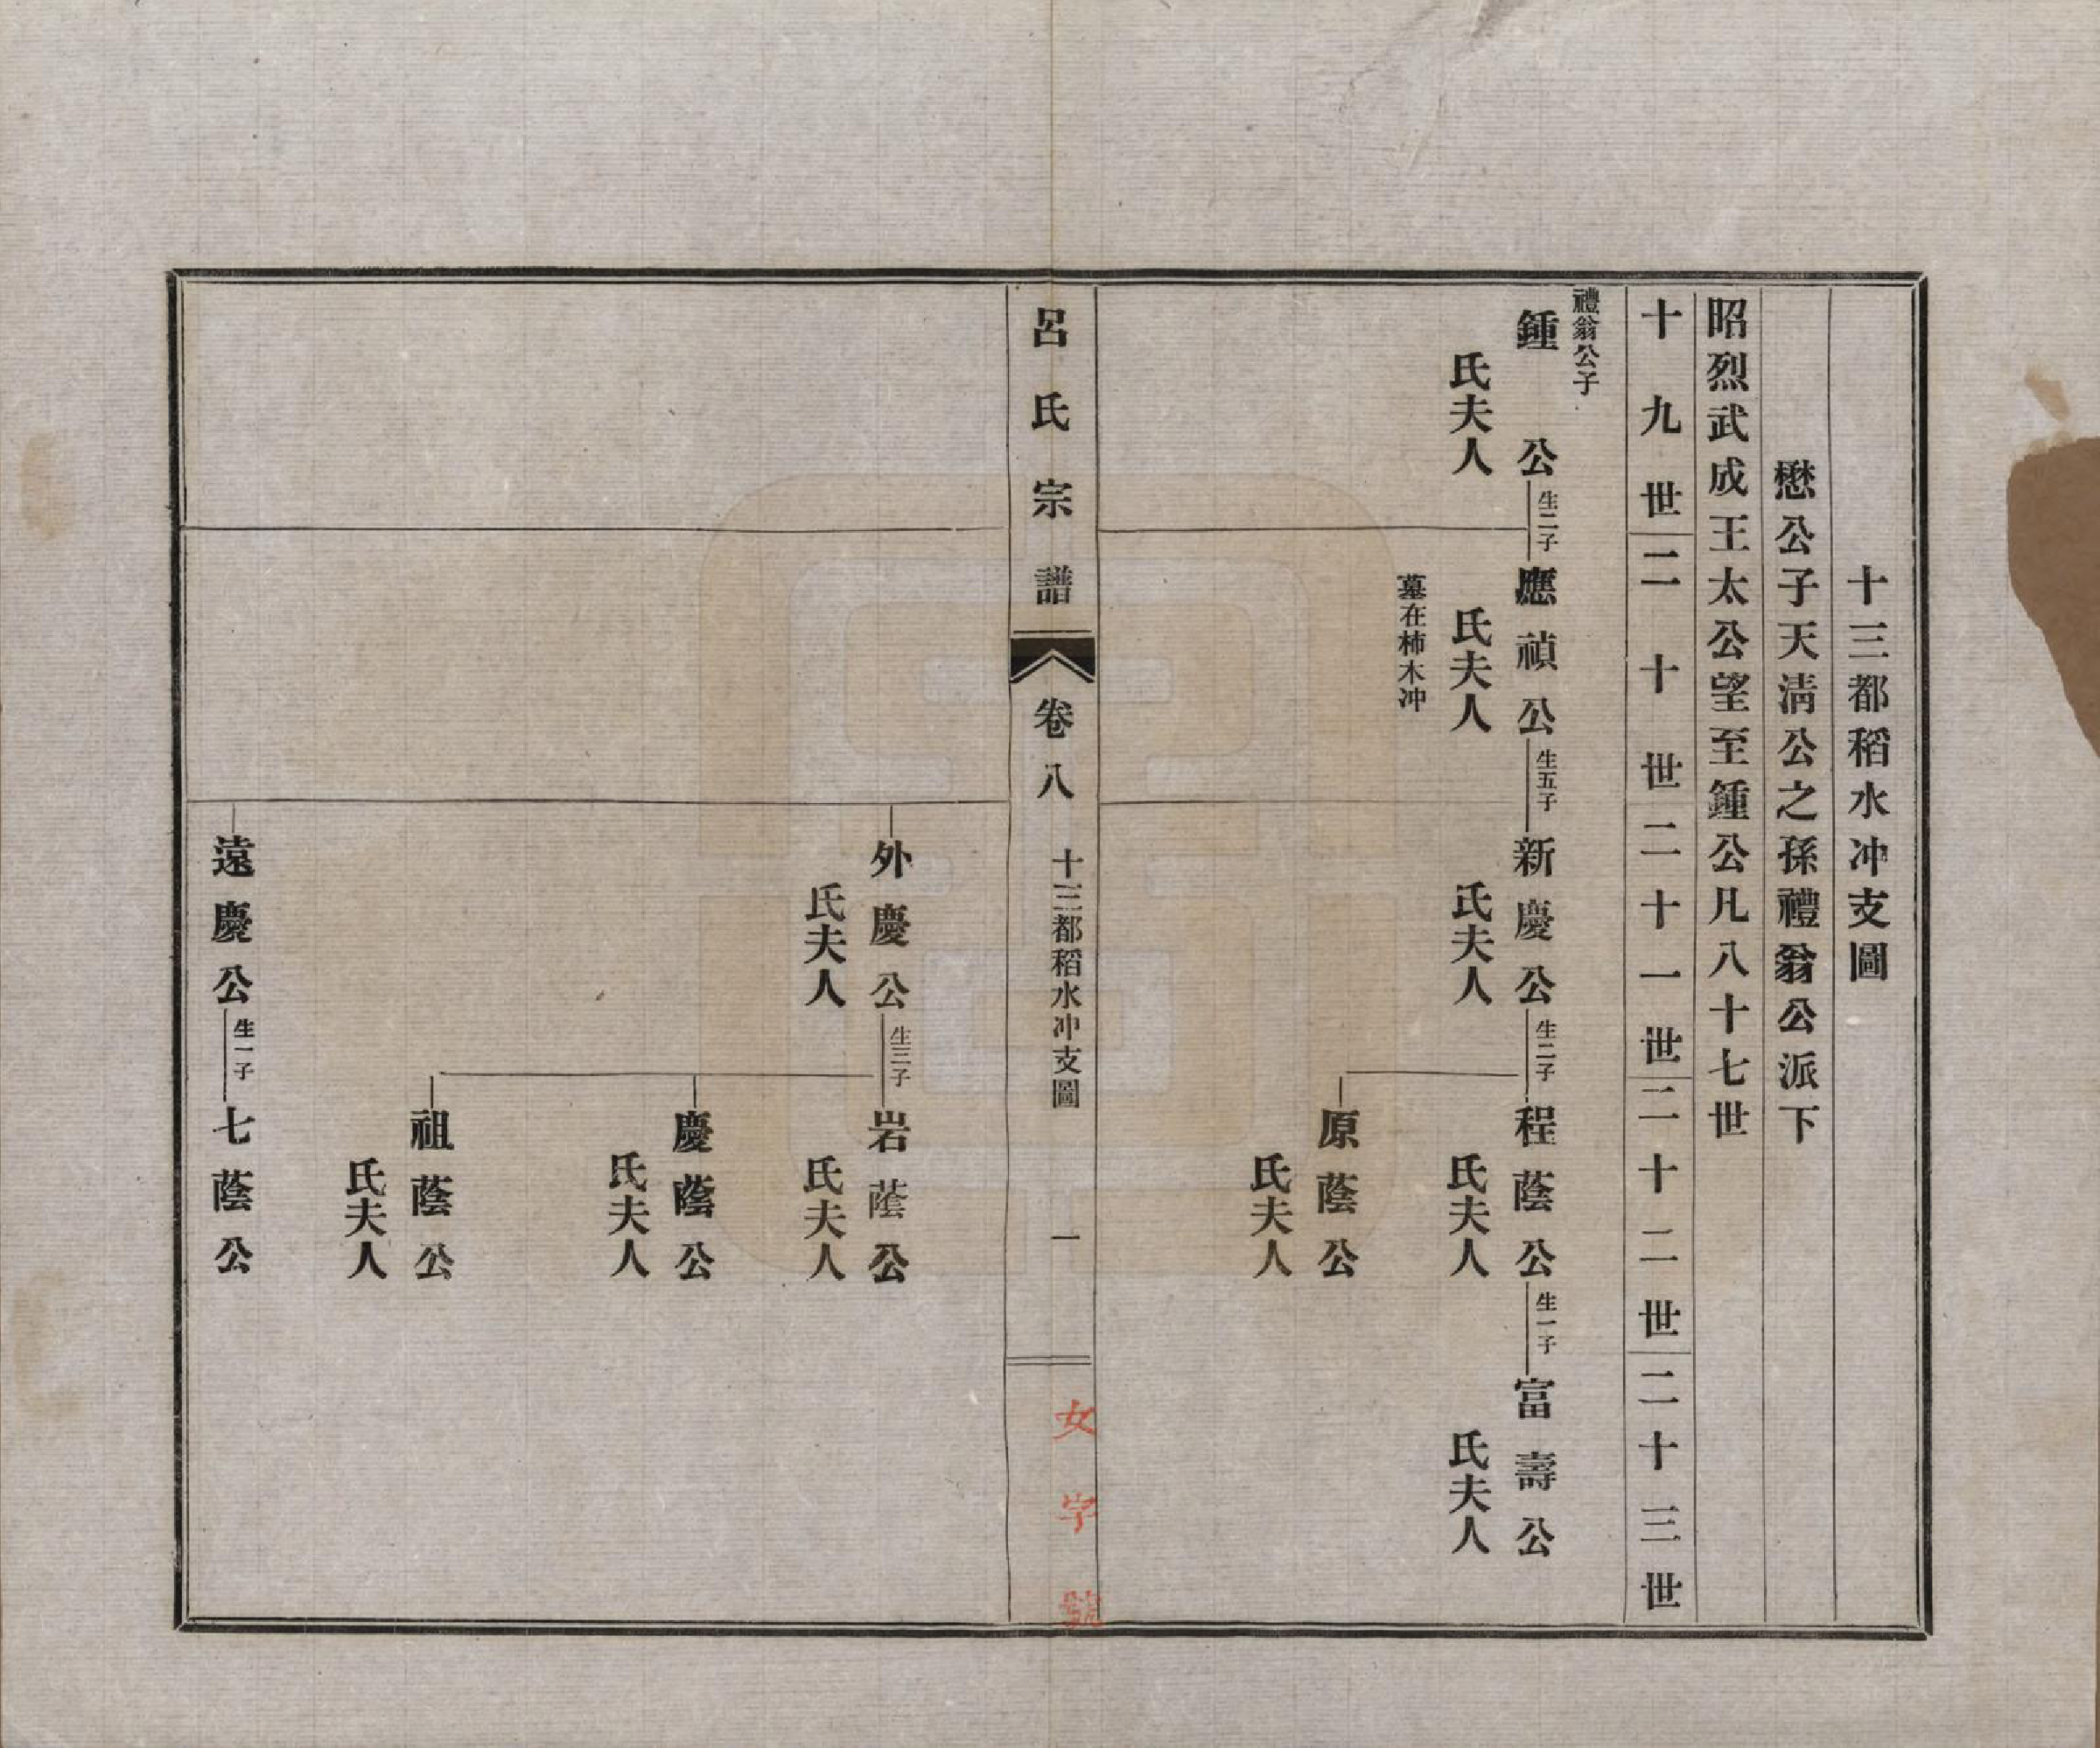 十三都稻水冲支圖
懋公子天清公之孫禮翁公派下
昭烈武成王太公望至鍾公凡八十七世
十九世
二十世
二十一世
二十二世
二十三世
禮翁公子
鍾公
生二子
應禎公
生五子
新慶公
生二子
程蔭公
生一子
富壽公
氏夫人
氏夫人
氏夫人
氏夫人
氏夫人
墓在柿木冲
原蔭公
氏夫人
呂氏宗譜
卷八
十三都稻水冲支圖
一
女字號
外慶公
生三子
岩蔭公
氏夫人
氏夫人
慶蔭公
氏夫人
祖蔭公
氏夫人
遠慶公
生一子
七蔭公